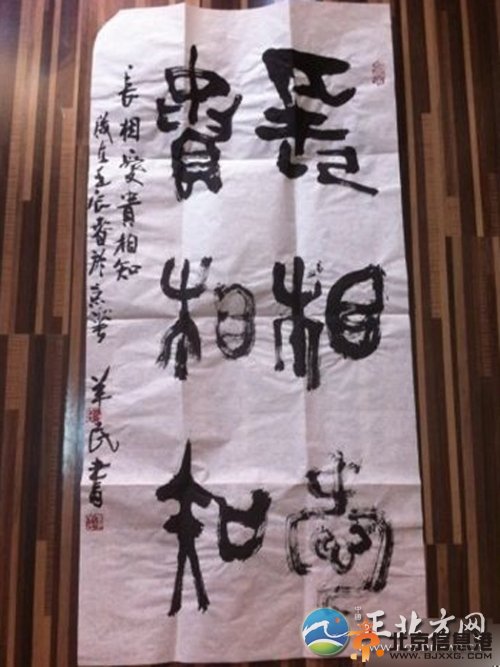 長相愛
貴相知
長相愛貴相知
歲在壬辰春於京華
羊民書
中国
正北方网
北京信息港
WWW.BJXXG.COM